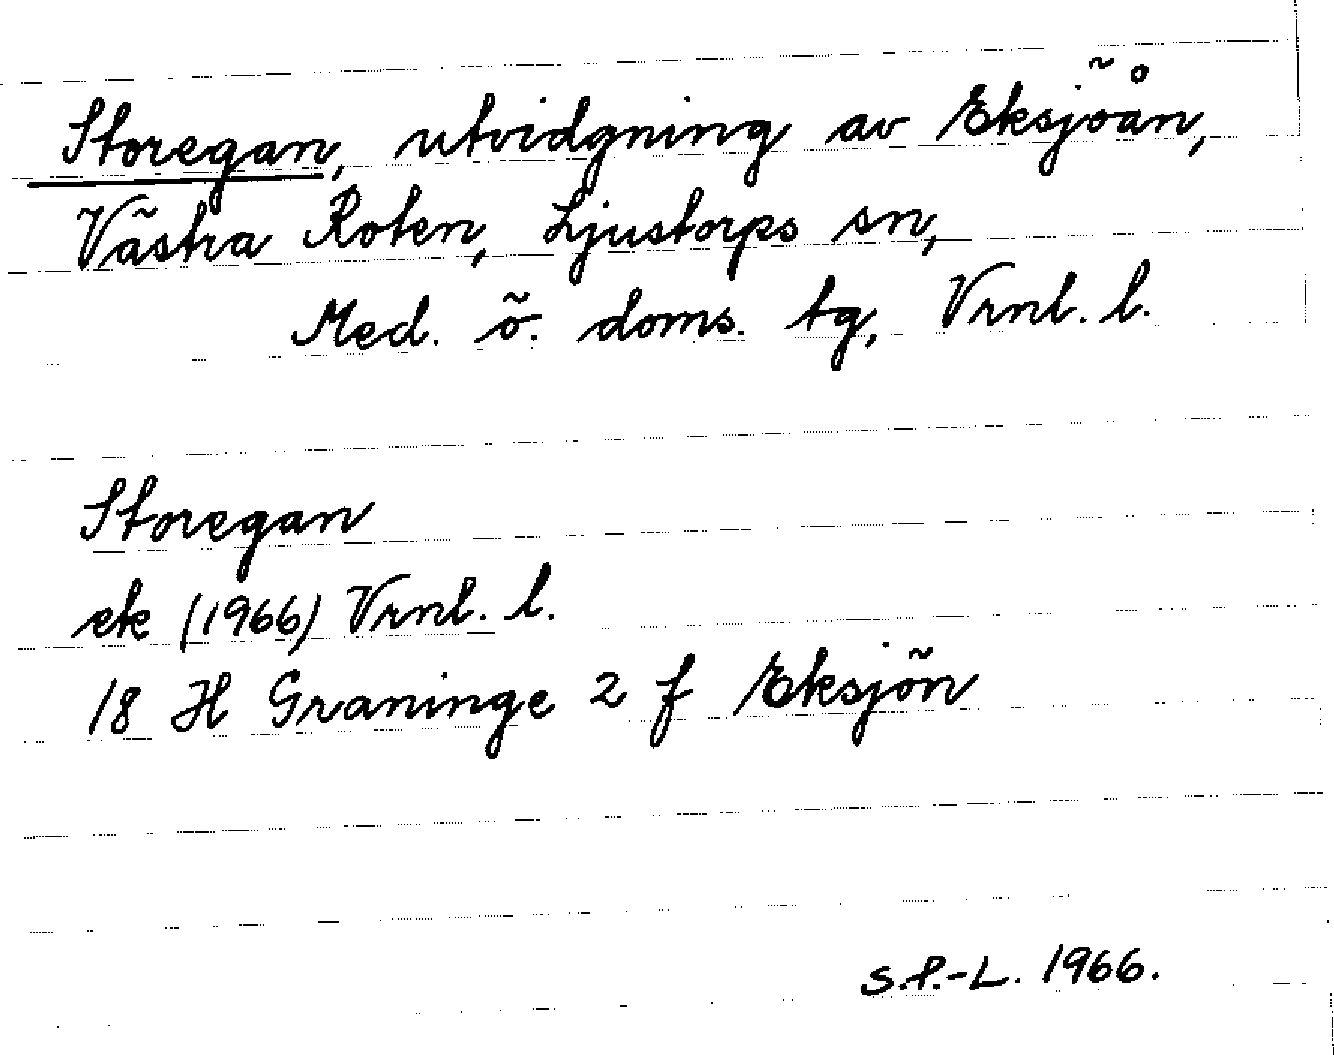 Storegan, utvidgning av Eksjöån,
Västra Roten, Ljustorps sn,
Med. ö. doms. tg, Vrnl. l.
Storegan
ek (1966) Vrnl. l.
18 H Graninge 2 f Eksjön
S.P.-L. 1966.